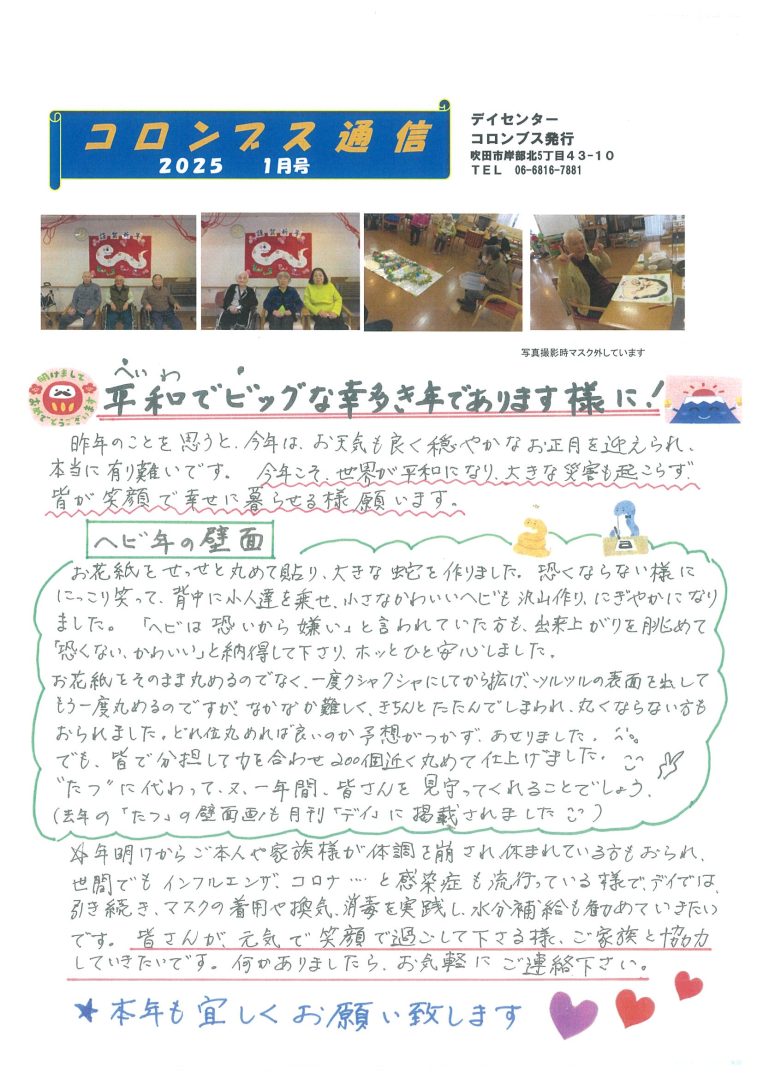 コロンブス通信
2025 1月号
デイセンター
コロンブス発行
吹田市岸部北5丁目43-10
TEL 06-6816-7881
謹賀新年
謹賀新年
写真撮影時マスク外しています
明けまして
おめでとうございます
へいわ
平和でビッグな幸多き年であります様に!
昨年のことを思うと、今年は、お天気も良く穏やかなお正月を迎えられ、
本当に有り難いです。 今年こそ、世界が平和になり、大きな災害も起こらず
皆が笑顔で幸せに暮らせる様願います。
ヘビ年の壁面
お花紙をせっせと丸めて貼り、大きな蛇を作りました。恐くならない様に
にっこり笑って、背中に小人達を乗せ、小さなかわいいヘビも沢山作り、にぎやかになり
ました。 「ヘビは恐いから嫌い」と言われていた方も、出来上がりを眺めて
「恐くない、かわいい」と納得して下さり、ホッとひと安心しました。
お花紙をそのまま丸めるのでなく、一度クシャクシャにしてから拡げ、ツルツルの表面を出して
もう一度丸めるのですが、なかなか難しく、きちんとたたんでしまわれ、丸くならない方も
おられました。どれ位丸めれば良いのか予想がつかず、あせりました。
でも、皆で分担して力を合わせ200個近く丸めて仕上げました。
"たつ"に代わって、又、一年間、皆さんを見守ってくれることでしょう。
(去年の「たつ」の壁面画も月刊「デイ」に掲載されました)
年明けからご本人や家族様が体調を崩され休まれている方もおられ、
世間でもインフルエンザ、コロナ…と感染症も流行っている様で、デイでは、
引き続き、マスクの着用や換気、消毒を実践し、水分補給も勧めていきたい
です。皆さんが、元気で笑顔で過ごして下さる様、ご家族と協力
していきたいです。何かありましたら、お気軽にご連絡下さい。
★本年も宜しくお願い致します